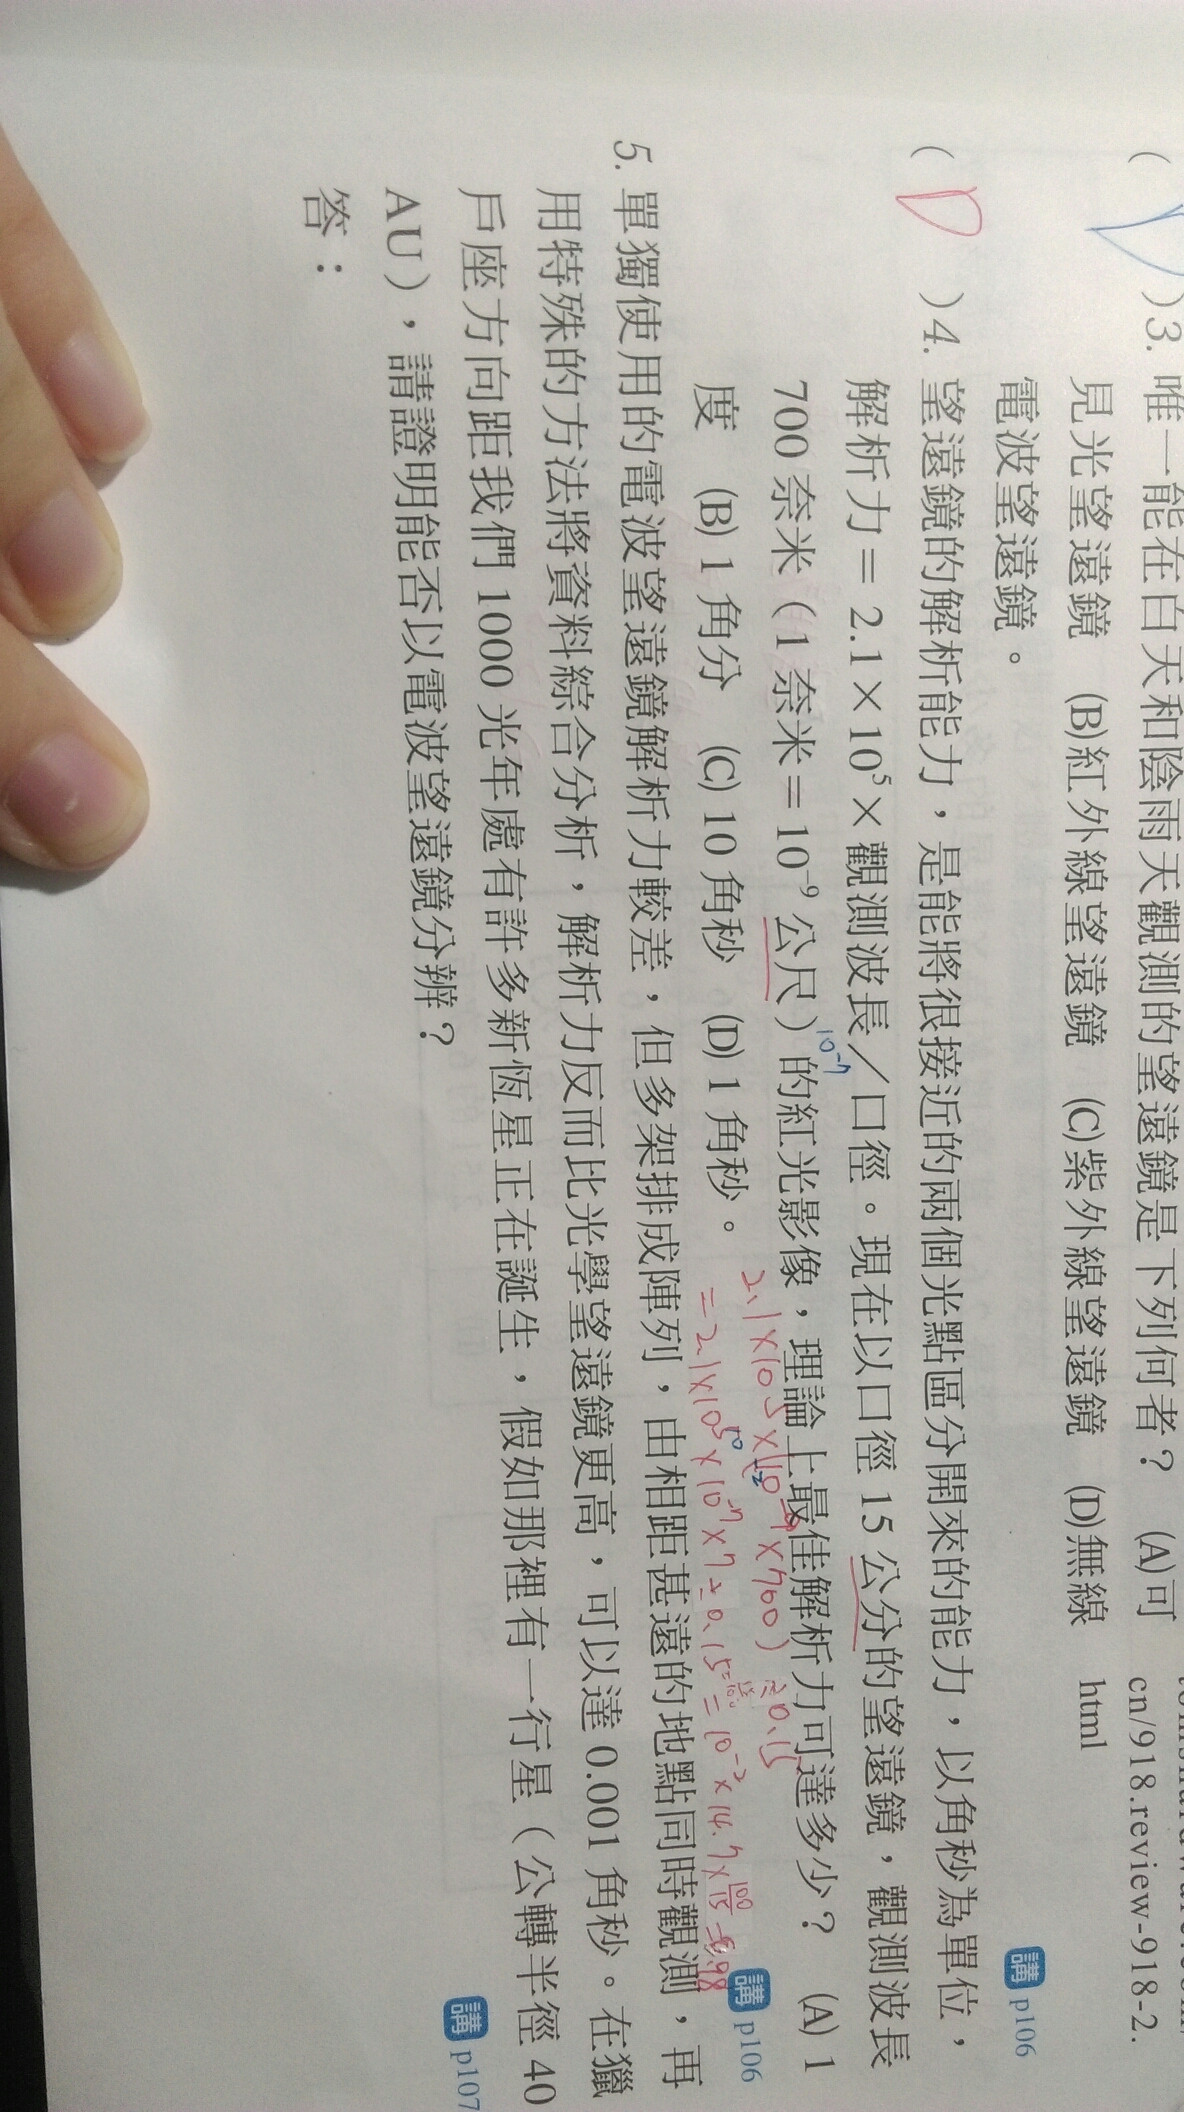 ( D )3. 唯一能在白天和陰雨天觀測的望遠鏡是下列何者？ (A)可
見光望遠鏡 (B)紅外線望遠鏡 (C)紫外線望遠鏡 (D)無線
電波望遠鏡。
講 p106
cn/918.review-918-2.
html
( D )4. 望遠鏡的解析能力，是能將很接近的兩個光點區分開來的能力，以角秒為單位，
解析力＝ 2.1×10⁵×觀測波長／口徑。現在以口徑 15 公分的望遠鏡，觀測波長
700 奈米（1 奈米＝10⁻⁹ 公尺）的紅光影像，理論上最佳解析力可達多少？ (A) 1
度 (B) 1 角分 (C) 10 角秒 (D) 1 角秒。
講 p106
10⁻⁷
2.1×10⁵×(10⁻⁹×700)÷0.15
=2.1×10⁵×10⁻⁷×7÷0.15=10⁻²×14.7×100/15=0.98
5. 單獨使用的電波望遠鏡解析力較差，但多架排成陣列，由相距甚遠的地點同時觀測，再
用特殊的方法將資料綜合分析，解析力反而比光學望遠鏡更高，可以達 0.001 角秒。在獵
戶座方向距我們 1000 光年處有許多新恆星正在誕生，假如那裡有一行星（公轉半徑 40
AU），請證明能否以電波望遠鏡分辨？
講 p107
答：